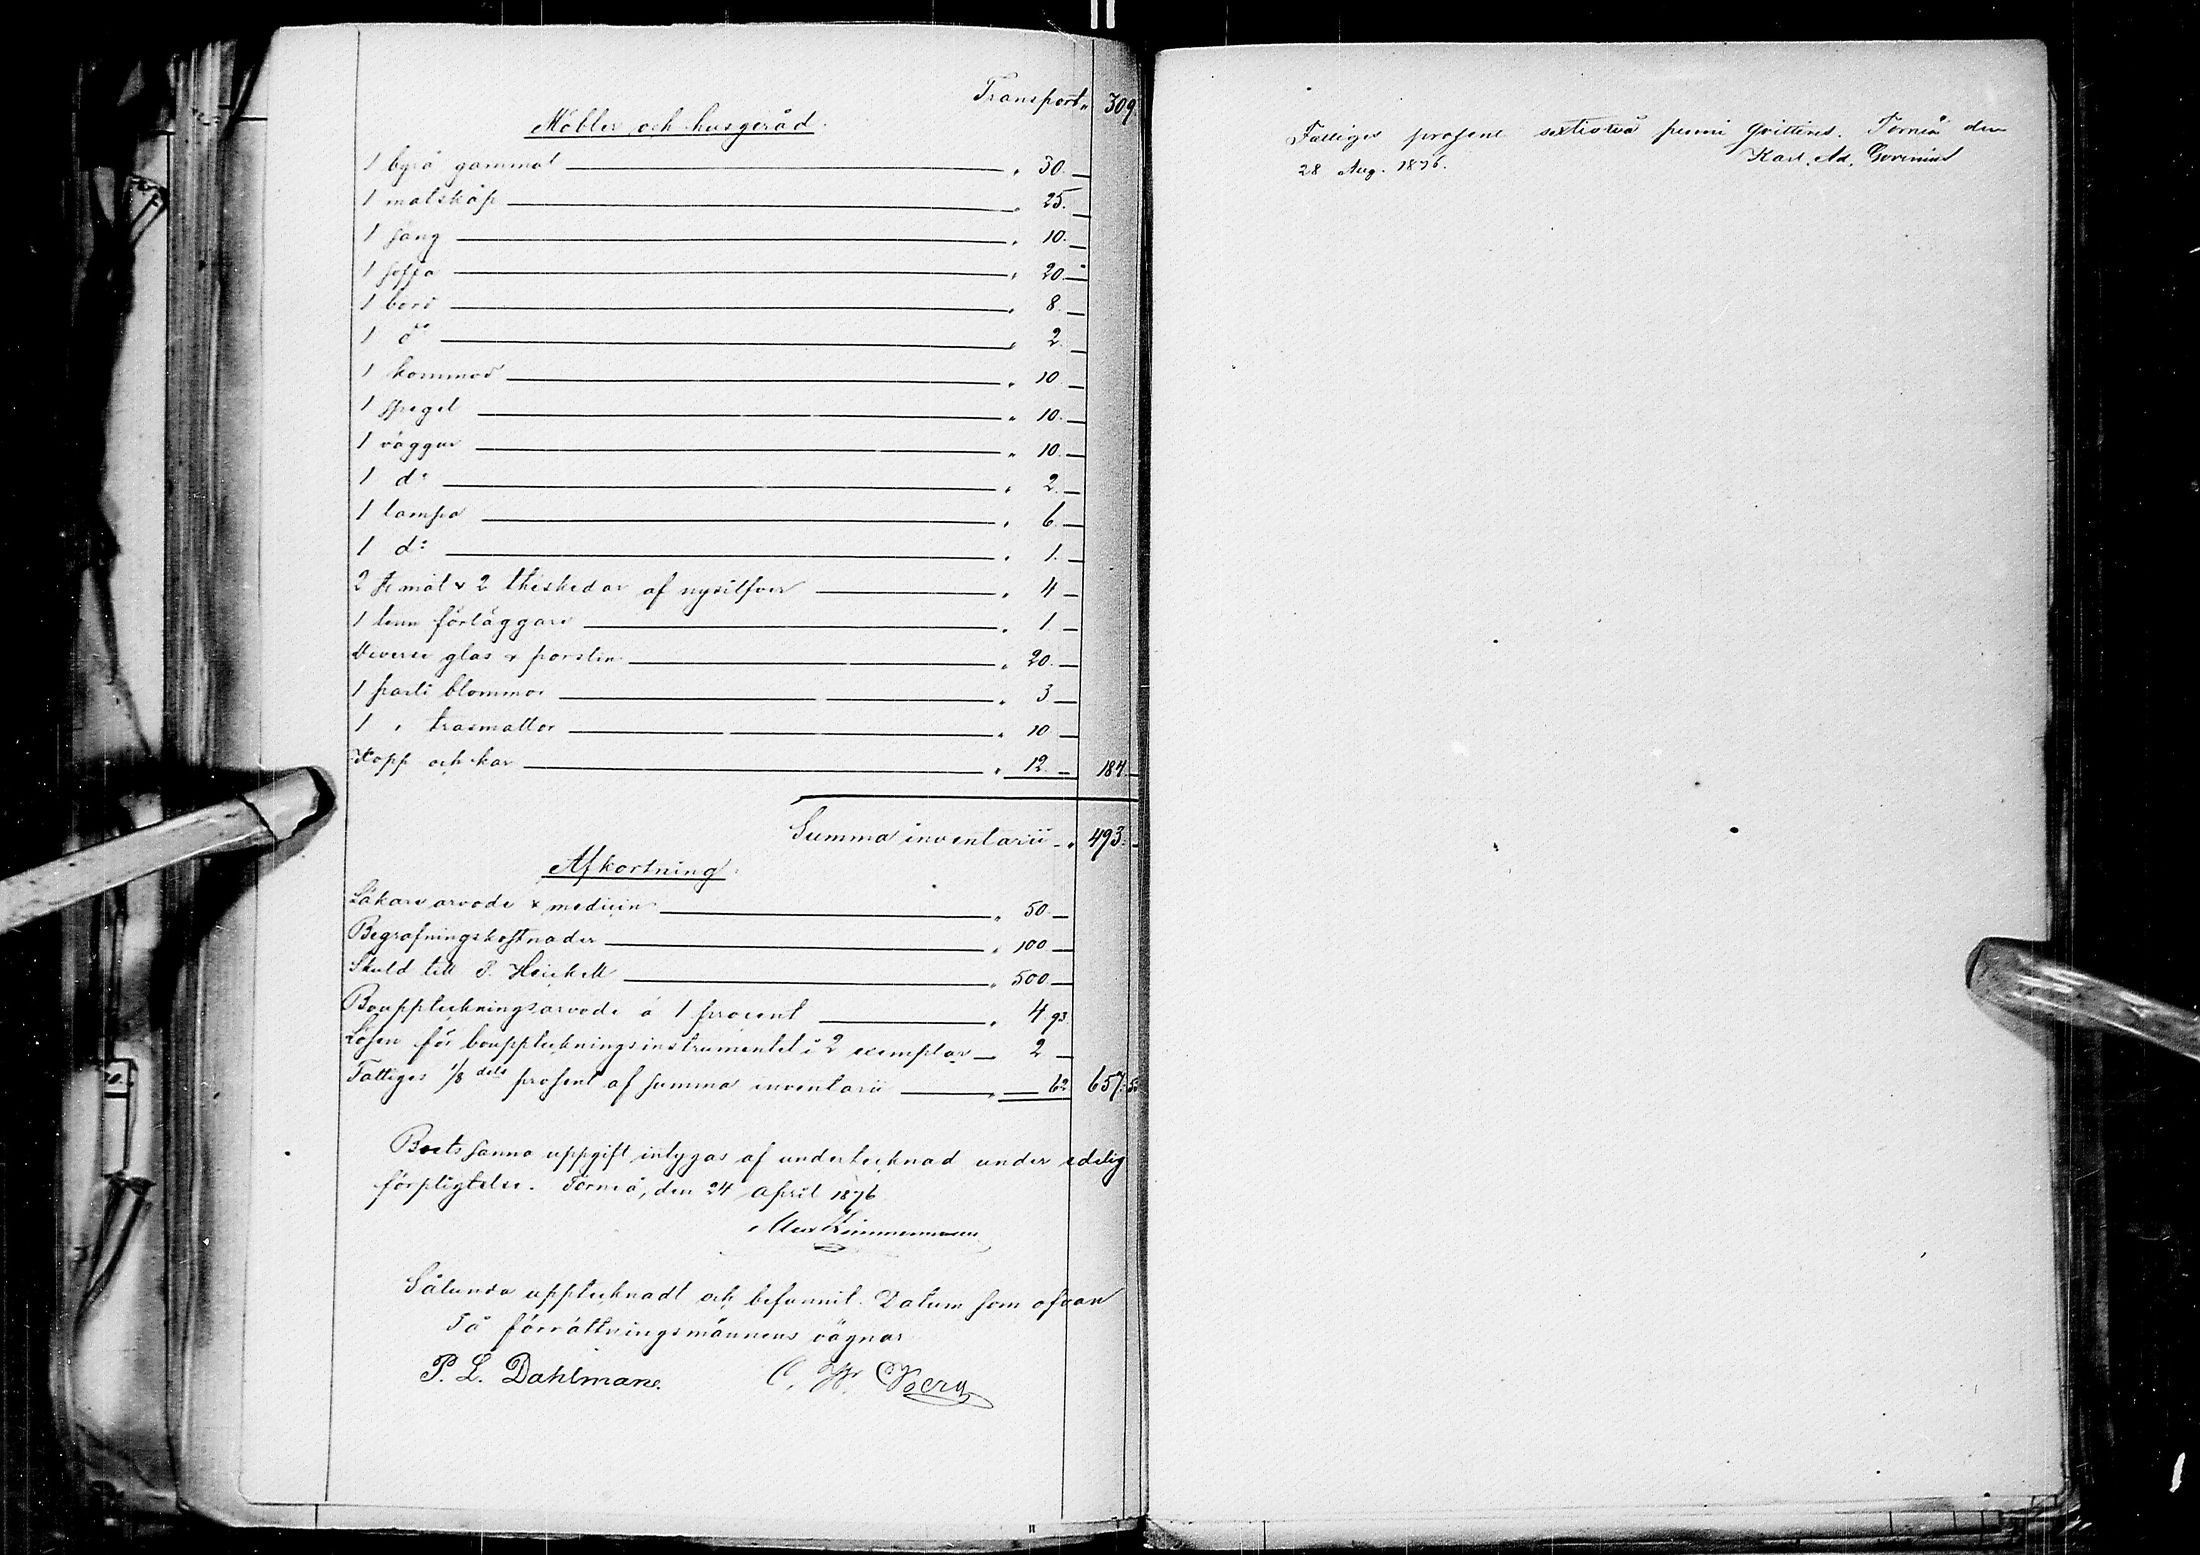 Transport " 309.
Möbler och husgeråd.
1 byrå gammal " 30. —
1 matskåp " 25. —
1 säng " 10. —
1 soffa " 20. —
1 bord " 8. —
1 d:o " 2. —
1 kommod " 10. —
1 spegel " 10. —
1 väggur " 10. —
1 d:o " 2. —
1 lampa " 6. —
1 d:o " 1. —
2 st mat & 2 theskedar af nysilfver " 4 —
1 tenn förläggare " 1. —
Diverse glas & porslin " 20. —
1 parti blommor " 3 —
1 " trasmattor " 10 —
Kopp och kar " 12. — 184. —
Summa inventarii " 493. —
Afkortning.
Läkare arvode & medicin " 50. —
Begrafningskostnader " 100 —
Skuld till P. Heickell " 500. —
Bouppteckningsarvode à 1 procent " 4. 93.
Lösen för bouppteckningsinstrumentet i 2 exemplar — 2 —
Fattiges 1/8 dels prosent af summa inventarii " — 62 657: 5
Boets sanna uppgift intygas af undertecknad under edelig
förpligtelse. Torneå, den 24 April 1876
Zimmermann
Sålunda upptecknadt och befunnit. Datum som ofvan
På förrättningsmännens vägnar
P. L. Dahlman. C. W. Berg
Fattiges prosent sextiotvå penni qvitteras. Torneå den
28 Aug. 1876. Karl. Ad. Govenius